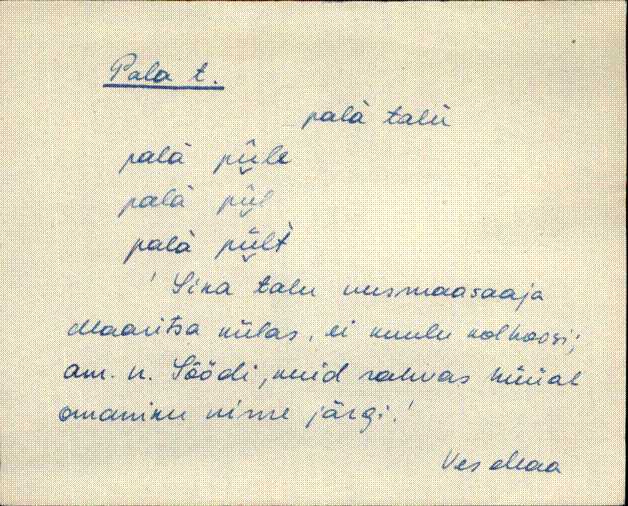 Pala t.
palà talù
palà pi̮i̮le
palà pi̮i̮l
palà pi̮i̮lt
'Sina talu uusmaasaaja
Maaritsa külas, ei kuulu kolhoosi;
am. n. Söödi, kuid rahvas hüüab
omaniku nime järgi.'
Ves Maa